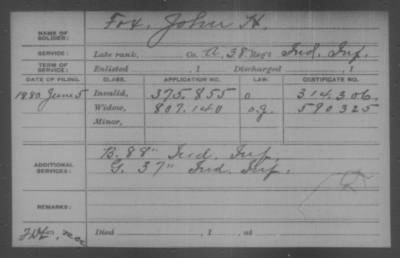 NAME OF SOLDIER: Fox, John H.
SERVICE: Late rank, Co. A, 38 Reg't Ind. Inf.
TERM OF SERVICE: Enlisted , 1 Discharged , 1
DATE OF FILING. CLASS. APPLICATION NO. LAW. CERTIFICATE NO.
1880 June 5 Invalid, 375.855 314.306.
Widow, 807.140 o.g. 590325
Minor,
ADDITIONAL SERVICES: B. 88" Ind. Inf.
G. 37" Ind. Inf.
REMARKS:
Died , 1 , at